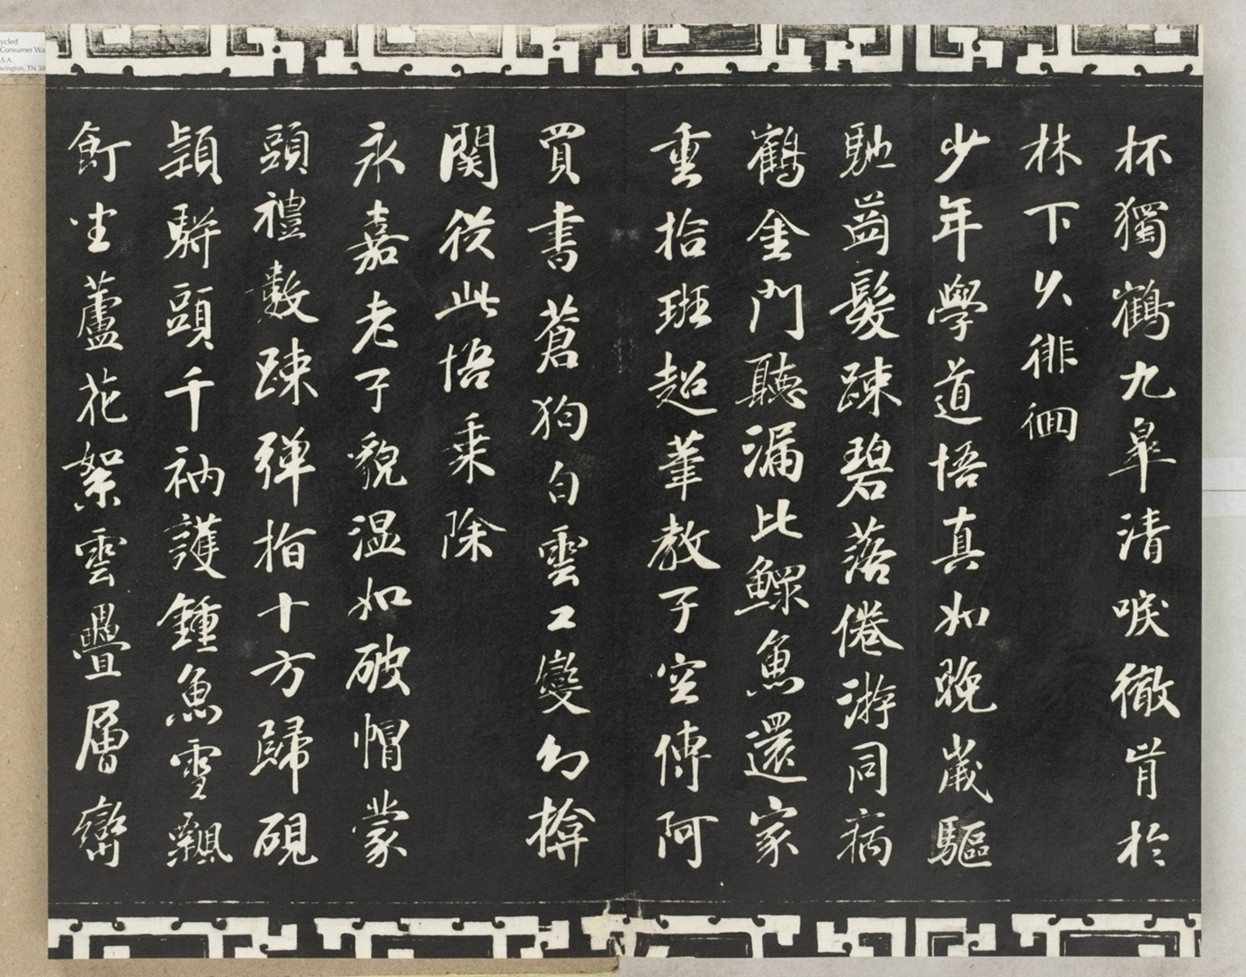 杯獨鶴九皋清唳徹肯於
林下久徘徊
少年學道悟真如晚嵗驅
馳齒髮踈碧落倦游同病
鶴金門聽漏比鰥魚還家
重拾班超筆教子空傳阿
買書蒼狗白雲工變幻揜
関從此悟乘除
永嘉老子貌温如破帽蒙
頭禮數踈弹指十方歸硯
頴駢頭千衲護鍾魚雪飄
飣坐蘆花絮雲疊層巒
ycled
Consumer Wa
S.A.
vington, TN 38